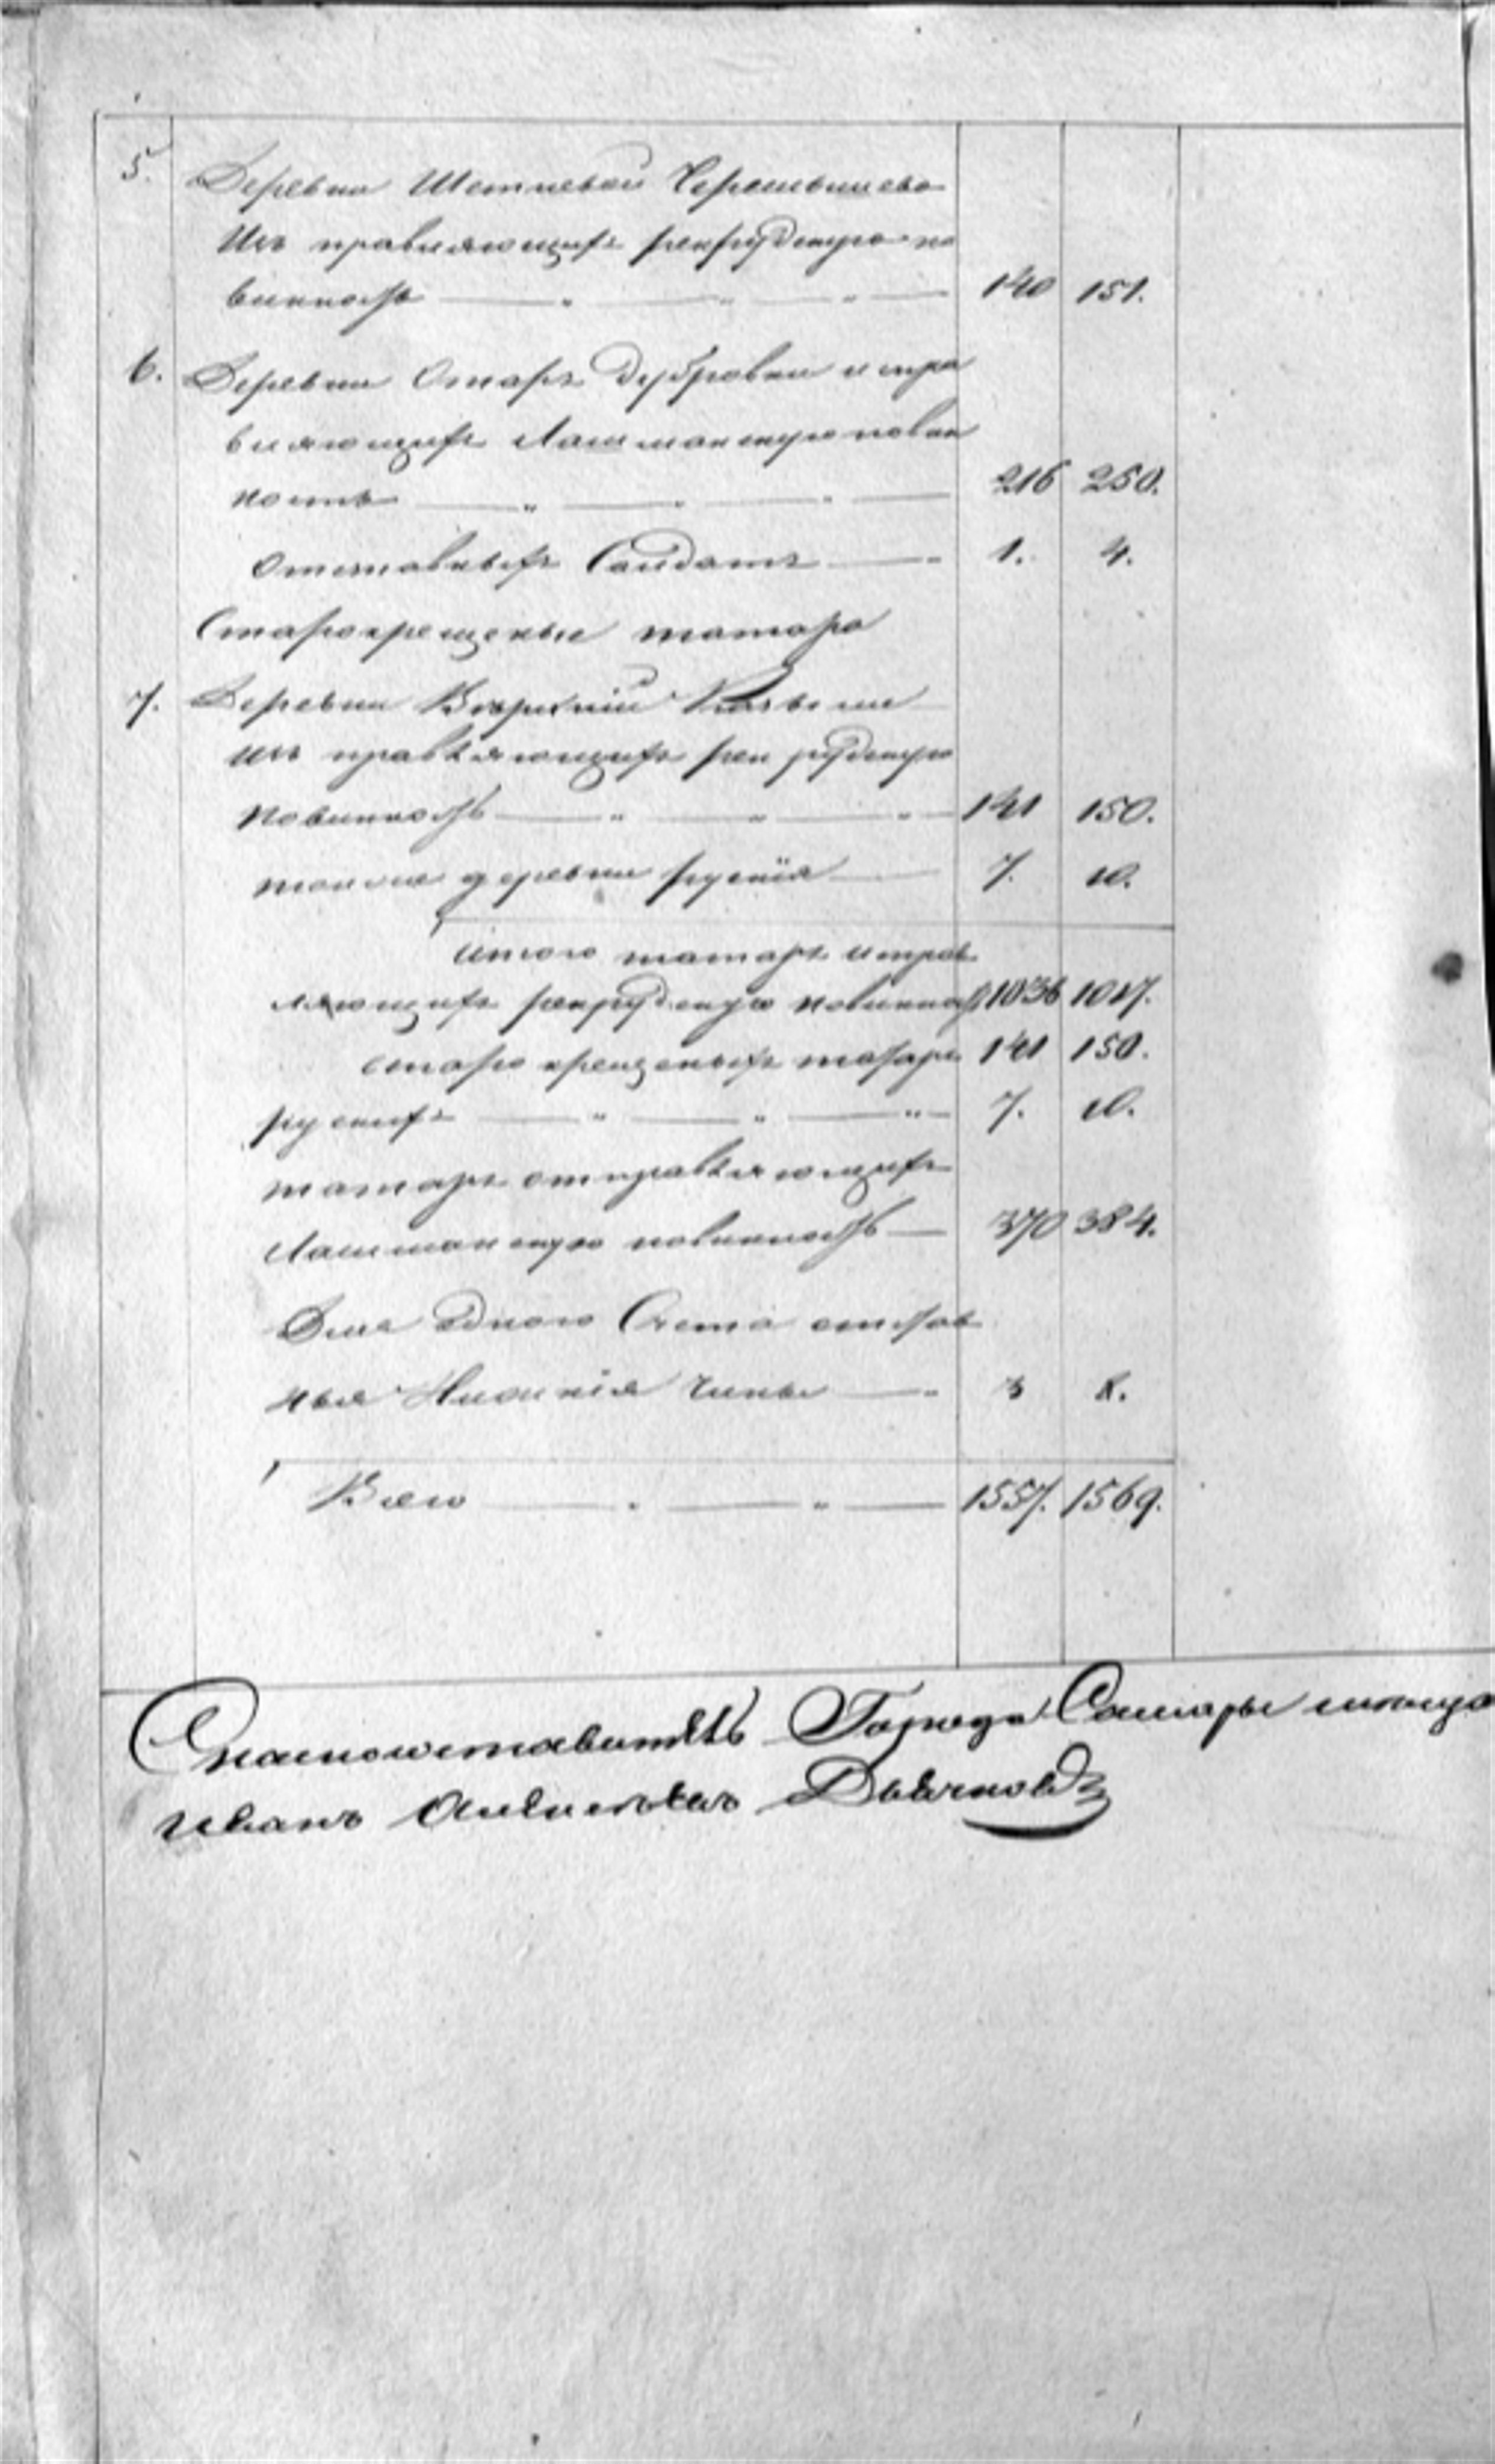 5. Деревни Черемышево
исправляющихъ рекрудскую по
винность 140 151.
6. Деревни Старъ Дубровки испра
вляющихъ Лашманскую повин
ность 216 250.
отставныхъ Салдатъ 1. 4.
Старокрещеные татара
7. Деревни Верхній
исправляющихъ рекрудскую
повинность 141 150.
тоиже деревни руския 7. 10.
Итого татаръ исправ
ляющихъ рекрудскую повинность 1036 1017.
старокрещеныхъ татаръ 141 150.
рускихъ 7. 10.
татаръ отправляющихъ
Лашманскую повинность 370 384.
Счета отстав
ныя Нижнія чины 3 8.
Всего 1557. 1569.
Города Самары
Иванъ